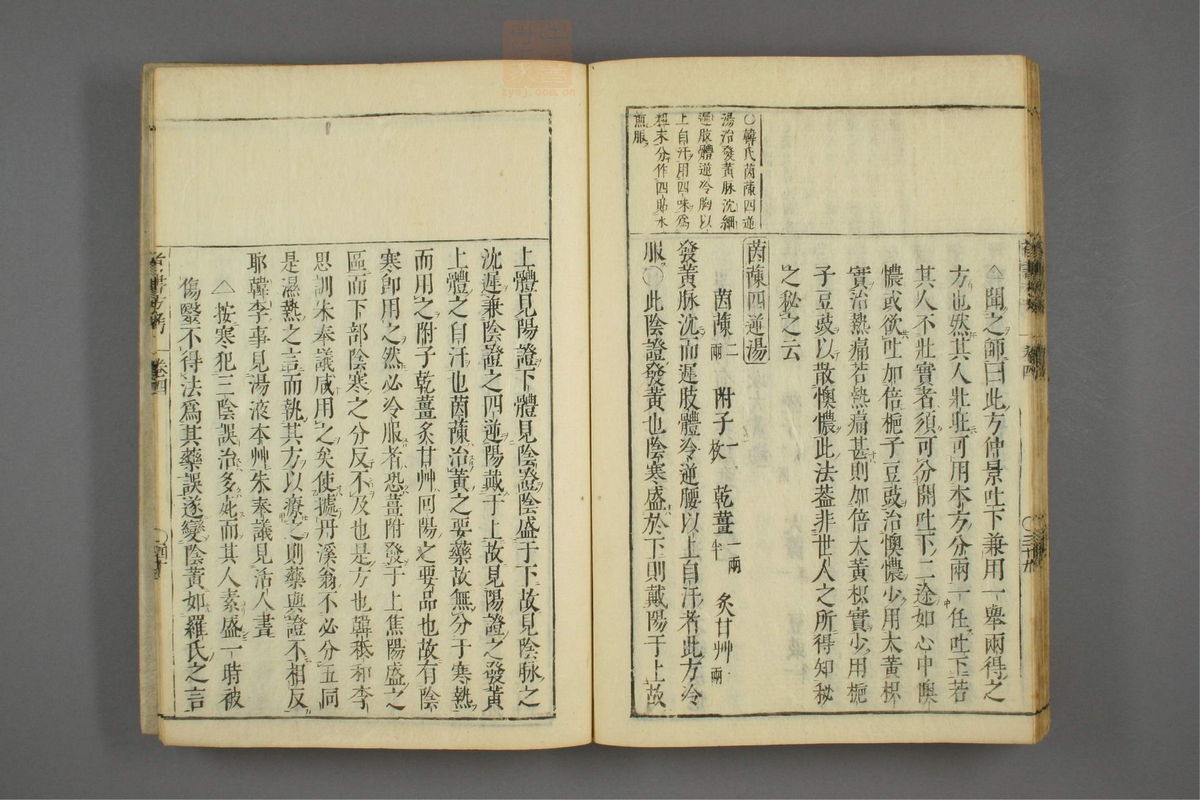 ○韓氏茵蔯四逆
湯治發黃脉沈細
遲肢體逆冷腰以
上自汗用四味爲
麁末分作四貼水
煎服
△聞之師曰此方仲景吐下兼用一舉兩得之
方也然其人壯壯可用本方分兩一任吐下若
其人不壯實者須可分開吐下二途如心中懊
憹或欲吐加倍梔子豆豉治懊憹少用大黃枳
實治熱痛若熱痛甚則加倍大黃枳實少用梔
子豆豉以散懊憹此法葢非世人之所得知秘
之秘之云
茵蔯四逆湯
茵蔯二兩 附子一枚 乾薑一兩半 炙甘艸一兩
發黃脉沈而遲肢體冷逆腰以上自汗者此方冷
服○此陰證發黃也陰寒盛於下則戴陽于上故
上體見陽證下體見陰證陰盛于下故見陰脉之
沈遲兼陰證之四逆陽戴于上故見陽證之發黃
上體之自汗也茵蔯治黃之要藥故無分于寒熱
而用之附子乾薑炙甘艸回陽之要品也故有陰
寒卽用之然必冷服者恐薑附發于上焦陽盛之
區而下部陰寒之分反不及也是方也韓祗和李
思訓朱奉議咸用之矣使據丹溪翁不必分五同
是濕熱之言而執其方以療之則藥與證不相反
耶韓李事見湯液本艸朱奉議見活人書
△按寒犯三陰誤治多死而其人素盛一時被
傷醫不得法爲其藥誤遂變陰黃如羅氏之言
卷四
zysj.com.cn